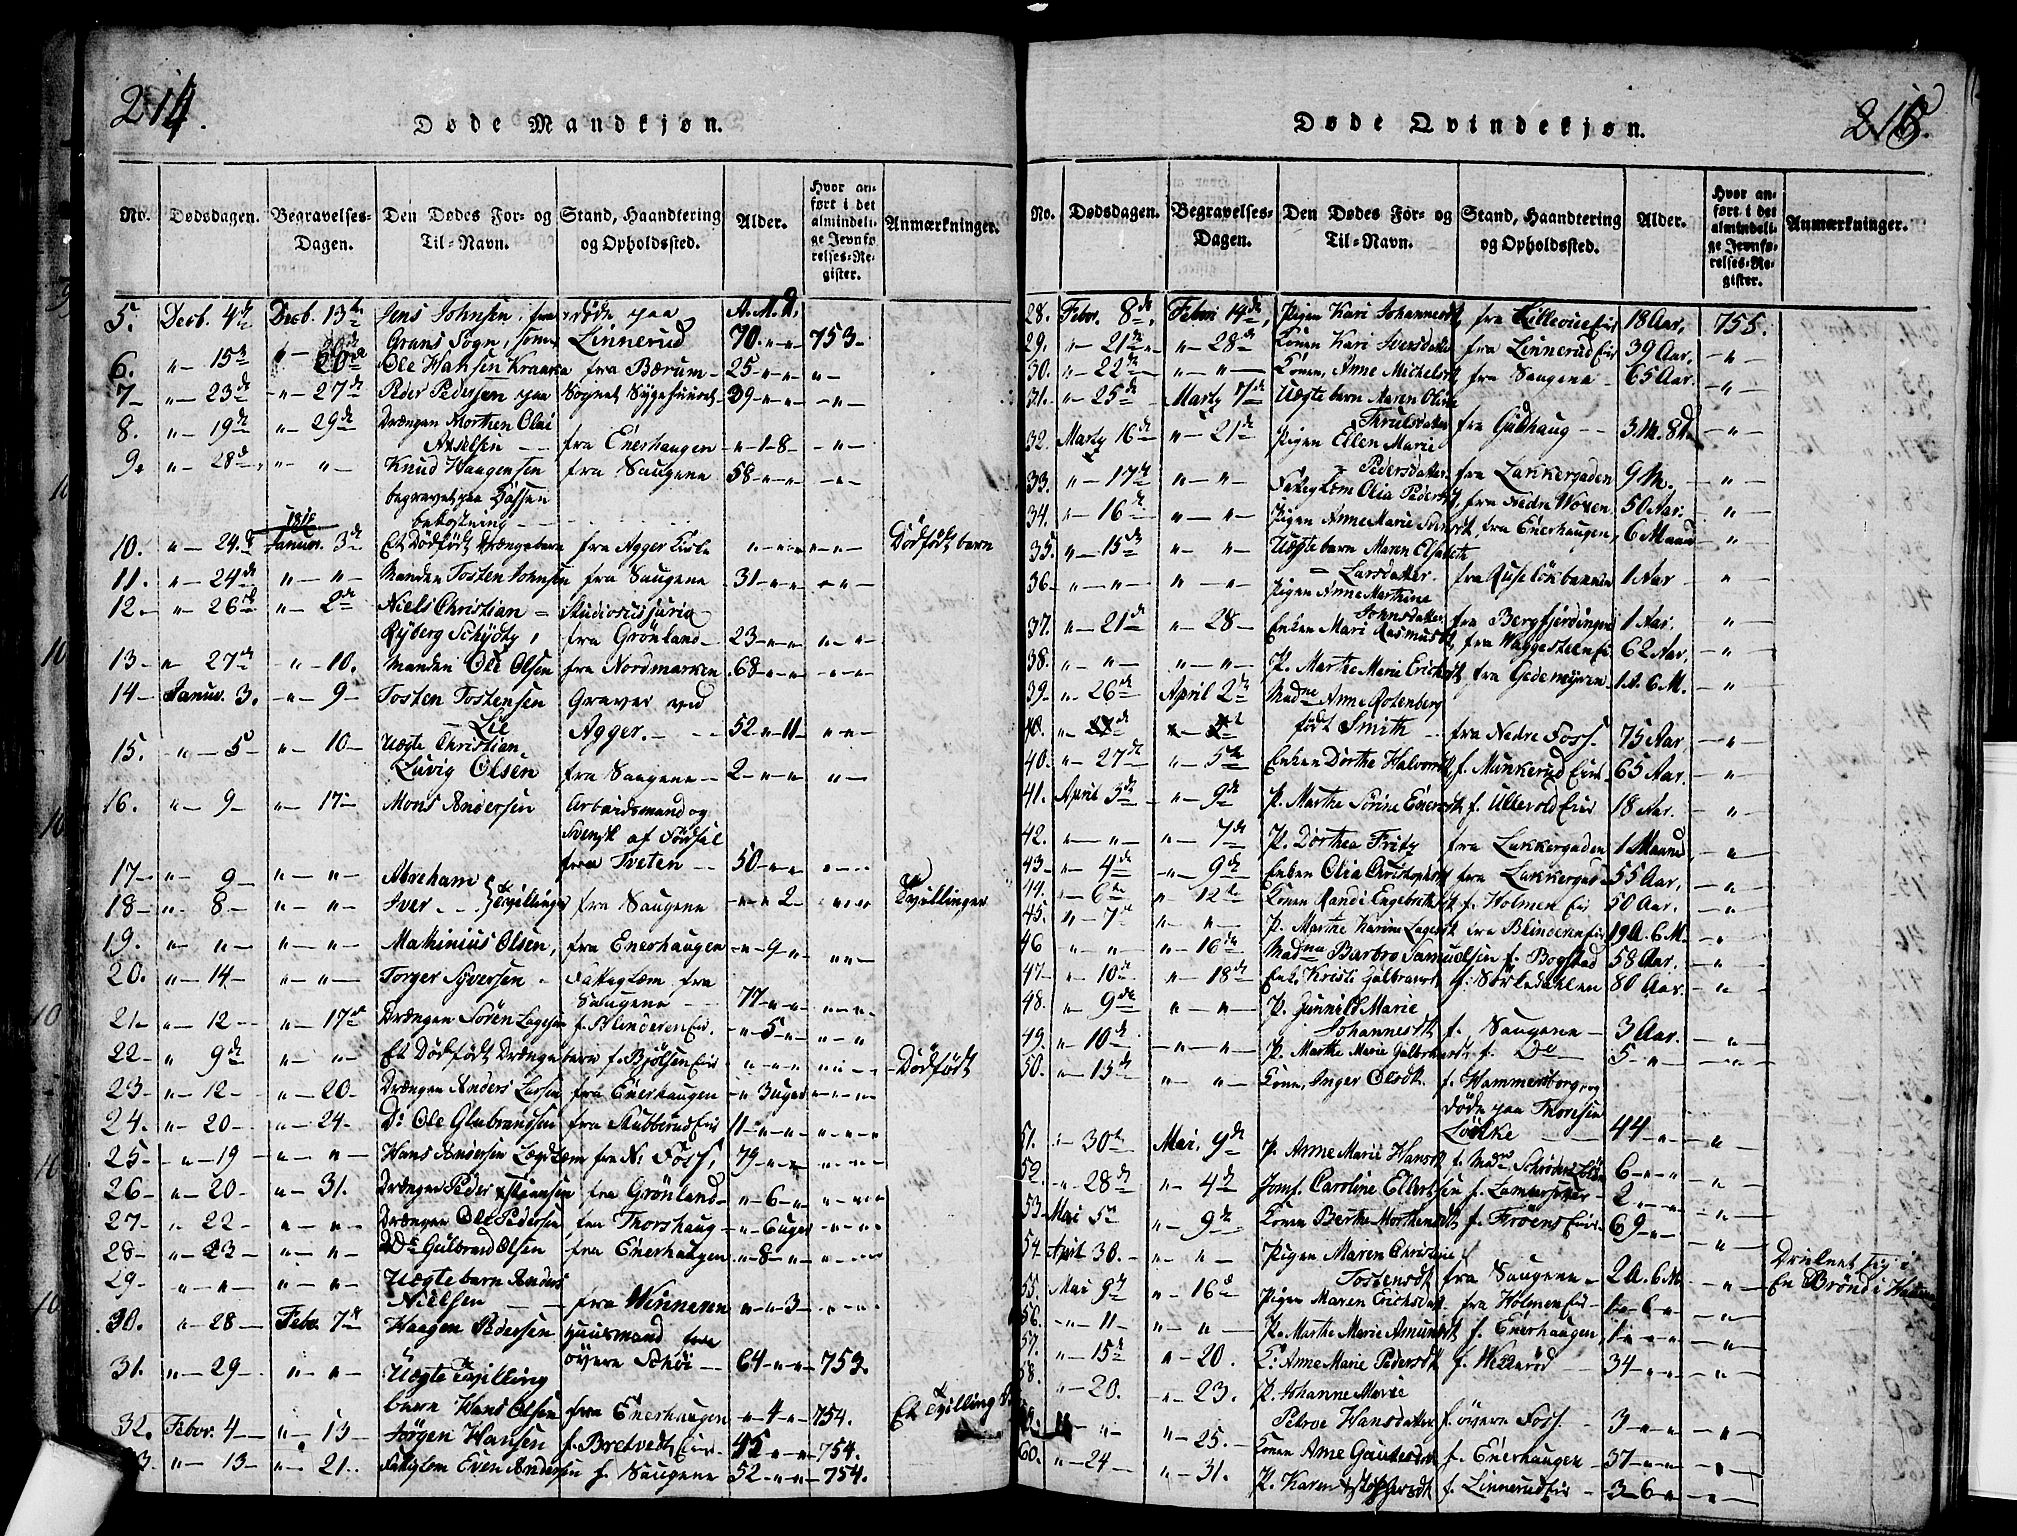 214.
Døde Mandkjøn.
No. Dødsdagen. Begravelses-Dagen. Den Dødes For- og Til-Navn. Stand, Haandtering og Opholdssted. Alder. Hvor anført i det almindelige Jevnførelses-Register. Anmærkninger.
5. Decb. 4de Decb. 13de Jens Johnsen, fra døde paa A. M. D.
Grans Sogn, som Linnerud 70 - „ - „ 753 -
6. „ - 15de „ - 20de Ole Hansen Kraaka fra Bærum - 25 - „ - „ „ -
7 - „ - 23de - „ - 27de Peder Pedersen paa Sognets Sygehuus - 39 - „ - „ - „ -
8. „ - 19de „ - 29de Drængen Morthen Olai
Axelsen - - fra Enerhaugen - „ - 1 - 8 - - „ -
9. „ - 28de „ - „ - Knud Haagensen fra Saugene 58 - „ - „ - „ -
begravet paa
bekostning - -
1816
10. „ - 24de Januar. 3de Et Dödfödt Drængebarn fra Agger „ - „ - „ - „ - Dödfödt barn
11. „ - 24de „ - „ - Manden Tosten Johnsen fra Saugene 31 - „ - „ - „ -
12. „ - 26de „ - 2de Niels Christian = Studiosus juris
Ryberg Schydtz, fra Grönland - 23 - „ - „ „ - „ -
13 - „ 27de - „ - 10. Manden Ole Olsen fra Nordmarken 68 - „ - „ „ - „ -
14 - Januar. 3. - „ - 9 - Tosten Tostensen Graver ved
Lie Agger. - - 52 - „ - 11 - „ - „ -
15. „ - 5 - „ - 10 - Uægte Christian
Luvig Olsen fra Saugene - 2 - „ - „ „ - „ -
16. „ - 9 - „ - 17 - Mons Andersen Arbeidsmand og
Svensk af Födsel
fra Tveten - - 50 - „ - „ „ - „ -
17 - „ - 9 - „ - „ - Abraham
18 - „ - 8 - „ - „ - Iver - - Tvillinger fra Saugene - „ - „ 2 - „ „ - Tvillinger
19. „ - „ - „ - „ - Mathinius Olsen, fra Enerhaugen - „ - 9 - „ „ „ -
20. „ - 14 - „ - „ - Torger Syversen - Fattiglem fra
Saugene - - 77 - „ - „ „ - „ -
21 - „ - 12 - „ - 17de Drængen Sören Lagesen f. Blinderen Eie. - „ - 5 - „ „ - „
22 - „ 9de „ - „ - Et Dödfödt Drængebarn f. Bjölsen Eie „ - „ - „ „ „ - Dödfödt
23 - „ - 12 - „ - 20 - Drængen Anders Larsen fra Enerhaugen - „ - 3 uger „ - „ -
24. „ - 20 - „ - 24 - Do Ole Gulbrandsen fra Stubberud Eie 11 - „ - „ „ - „ -
25 - „ - 19 - „ - Hans Andersen fra N: Foss, 79 - „ - „ „ - „ -
26 - „ - 20 - „ - 31. Drængen Peder fra Grönland - „ - 6 - „ „ - „ -
27 - „ - 22 - „ - „ - Drængen Ole Pedersen fra Thorshaug - „ - 6 uger „ - „ -
28 - „ - 23 - „ - „ - Do Gulbrand Olsen fra Enerhaugen - „ - 8 - „ „ - „ -
29 - „ - „ - „ - „ - Uægte barn Anders
Nielsen - - fra Winneren - „ - „ 3 - „ - „ -
30. „ - 28 - Febr. 7de Haagen Pedersen Huusmand fra
övern - 64 - „ - „ 753.
31. „ - 29 - „ - „ - Uægte Tvilling
barn Hans Olsen fra Enerhaugen - „ - 4 - „ 754. Et Tvilling
32. Febr. 4 - „ - 13 - Jörgen Hansen f. Bretvedt Eie - 45 - „ - „ 754.
„ - 13 - „ - 21. Fattiglem Even Andersen f. Saugene 52 - „ - „ 754.
Døde Qvindekjøn.
No. Dødsdagen. Begravelses-Dagen. Den Dødes For- og Til-Navn. Stand, Haandtering og Opholdssted. Alder. Hvor anført i det almindelige Jevnførelses-Register. Anmærkninger.
28. Febr. 8de, Febr 14de, Pigen Kari Johannesdt, fra Eie 18 Aar, 755.
29. „ - 21de „ - 28de Konen Kari Iversdatter fra Linnerud Eie 39 Aar, - „ -
30. „ - 22de „ - „ - Konen, Anne Michelsdt fra Saugene - 65 Aar. - „ -
31. „ - 25de Marty 7de Uægte barn Maren Oline
Thruelsdatter fra Gulhaug - - 3. M. 8 D. - „ -
32. Marty 16de „ - 21de Pigen Ellen Marie
Pedersdatter fra Lakkergaden 9 M. - „ -
33. „ - 17de „ - „ - Fattiglem Olia Pedersdt, fra Nedre Woxen, 50 Aar. „ -
34. „ - 16de „ - „ - Pigen Anne Marie Svensdt, fra Enerhaugen, 6 Maand „ -
35. „ - 15de „ - „ - Uægte barn Maren Elsabeth
= Larsdatter. fra Ruselökbakken 1 Aar - „ -
36 - „ - „ - „ - „ - Pigen Anne Marthine
Johnsdatter fra Bergfjerdingen 1 Aar. „ -
37. „ - 21de „ - 28 - Enken Mari Rasmusdt, fra Waggesteen Eie 62 Aar, „ -
38. „ - „ - „ - „ - P. Marthe Marie Ericksdt, fra Gedemyren - 1 A. 6 M. „ -
39. „ - 26de April 2de Madme Anne Rotenberg
födt Smith - fra Nedre Foss. 75 Aar - „ -
40. „ - 27de „ - 5te Enken Dorthe Halvorsdt, f. Munkerud Eie - 65 Aar. - „ -
41. April 3de „ - 9de P. Marthe Sörine Enersdt f. Ullevold Eie 18 Aar. - „ -
42. „ - „ - „ - 7de P. Dorthea Fritz fra Lakkergaden 1 Maaned - „ -
43 - „ - 4de „ - 9de Enken Olia Christophersdt fra Lakkergad - 55 Aar, - „ -
44. „ - 6te „ - 12te Konen Randi Engebrethsdt f. Holmen Eie 50 Aar. - „ -
45. „ - 7de „ - „ - P. Marthe Karine Lagesdt fra Blinderen Eie 19 A. 6 M. - „ -
46 „ - „ - „ - 16de Madme Barbro Samuelsen f. Bogstad 58 Aar. - „ -
47 - „ - 10de „ - 18de Enk. Kristi Gulbransdt f. Sörkedahlen 80 Aar. - „ -
48. „ - 9de „ - „ - P. Gunnild Marie
Johannesdt f. Saugene - 3 Aar. - „ -
49. „ - 10de - „ - „ - P. Marthe Marie Gulbrandsdt. f. Do - 5 - „ - „ -
50. „ - 15de „ - „ - Konen, Inger Olsdt. f. Hammersborg, og
döde paa Thoresen
Lökke - - 44 - „ - „ -
51. „ - 30te Mai. 9de P. Anne Marie Hansdt f. Madme Schröders Löke 6 - „ - „ - „ -
52. „ - 28de „ - 4de Jomf. Caroline Ellertsen f. Lambersæter - 2 - „ - „ - „ -
53. Mai 5te „ - 9de Konen Berthe Morthensdt f. Fröens Eie - 69 - „ - „ -
54. April 30. - „ - „ - Pigen Maren Christine
Tostensdt fra Saugene - 2 A. 6 M. - „ - Druknet sig i
En Brönd i
55. Mai 9de „ - 16de Pigen Maren Ericksdatt. fra Holmen Eie - 1 - „ - 6 - „ - „ -
56. - „ - 11 - „ - „ - P. Marthe Marie Amundsdt f. Enerhaugen, 1 - „ - „ - „ -
57. „ - 15de „ - 20. K. Anne Marie Pedersdt f. - 34 - „ - „ - „ -
58. „ - 20. „ - 23. P. Johanne Marie
Petroe Hansdatter f. övern Foss. - 3 - „ - „ - „ -
„ - „ - 25. - Konen Anne Gautesdatt f. Enerhaugen - 37 - „ - „ - „ -
60. „ - 24 - „ - 31. P. Karen f. Linnerud Eie - 3 - 6 - „ - „ -